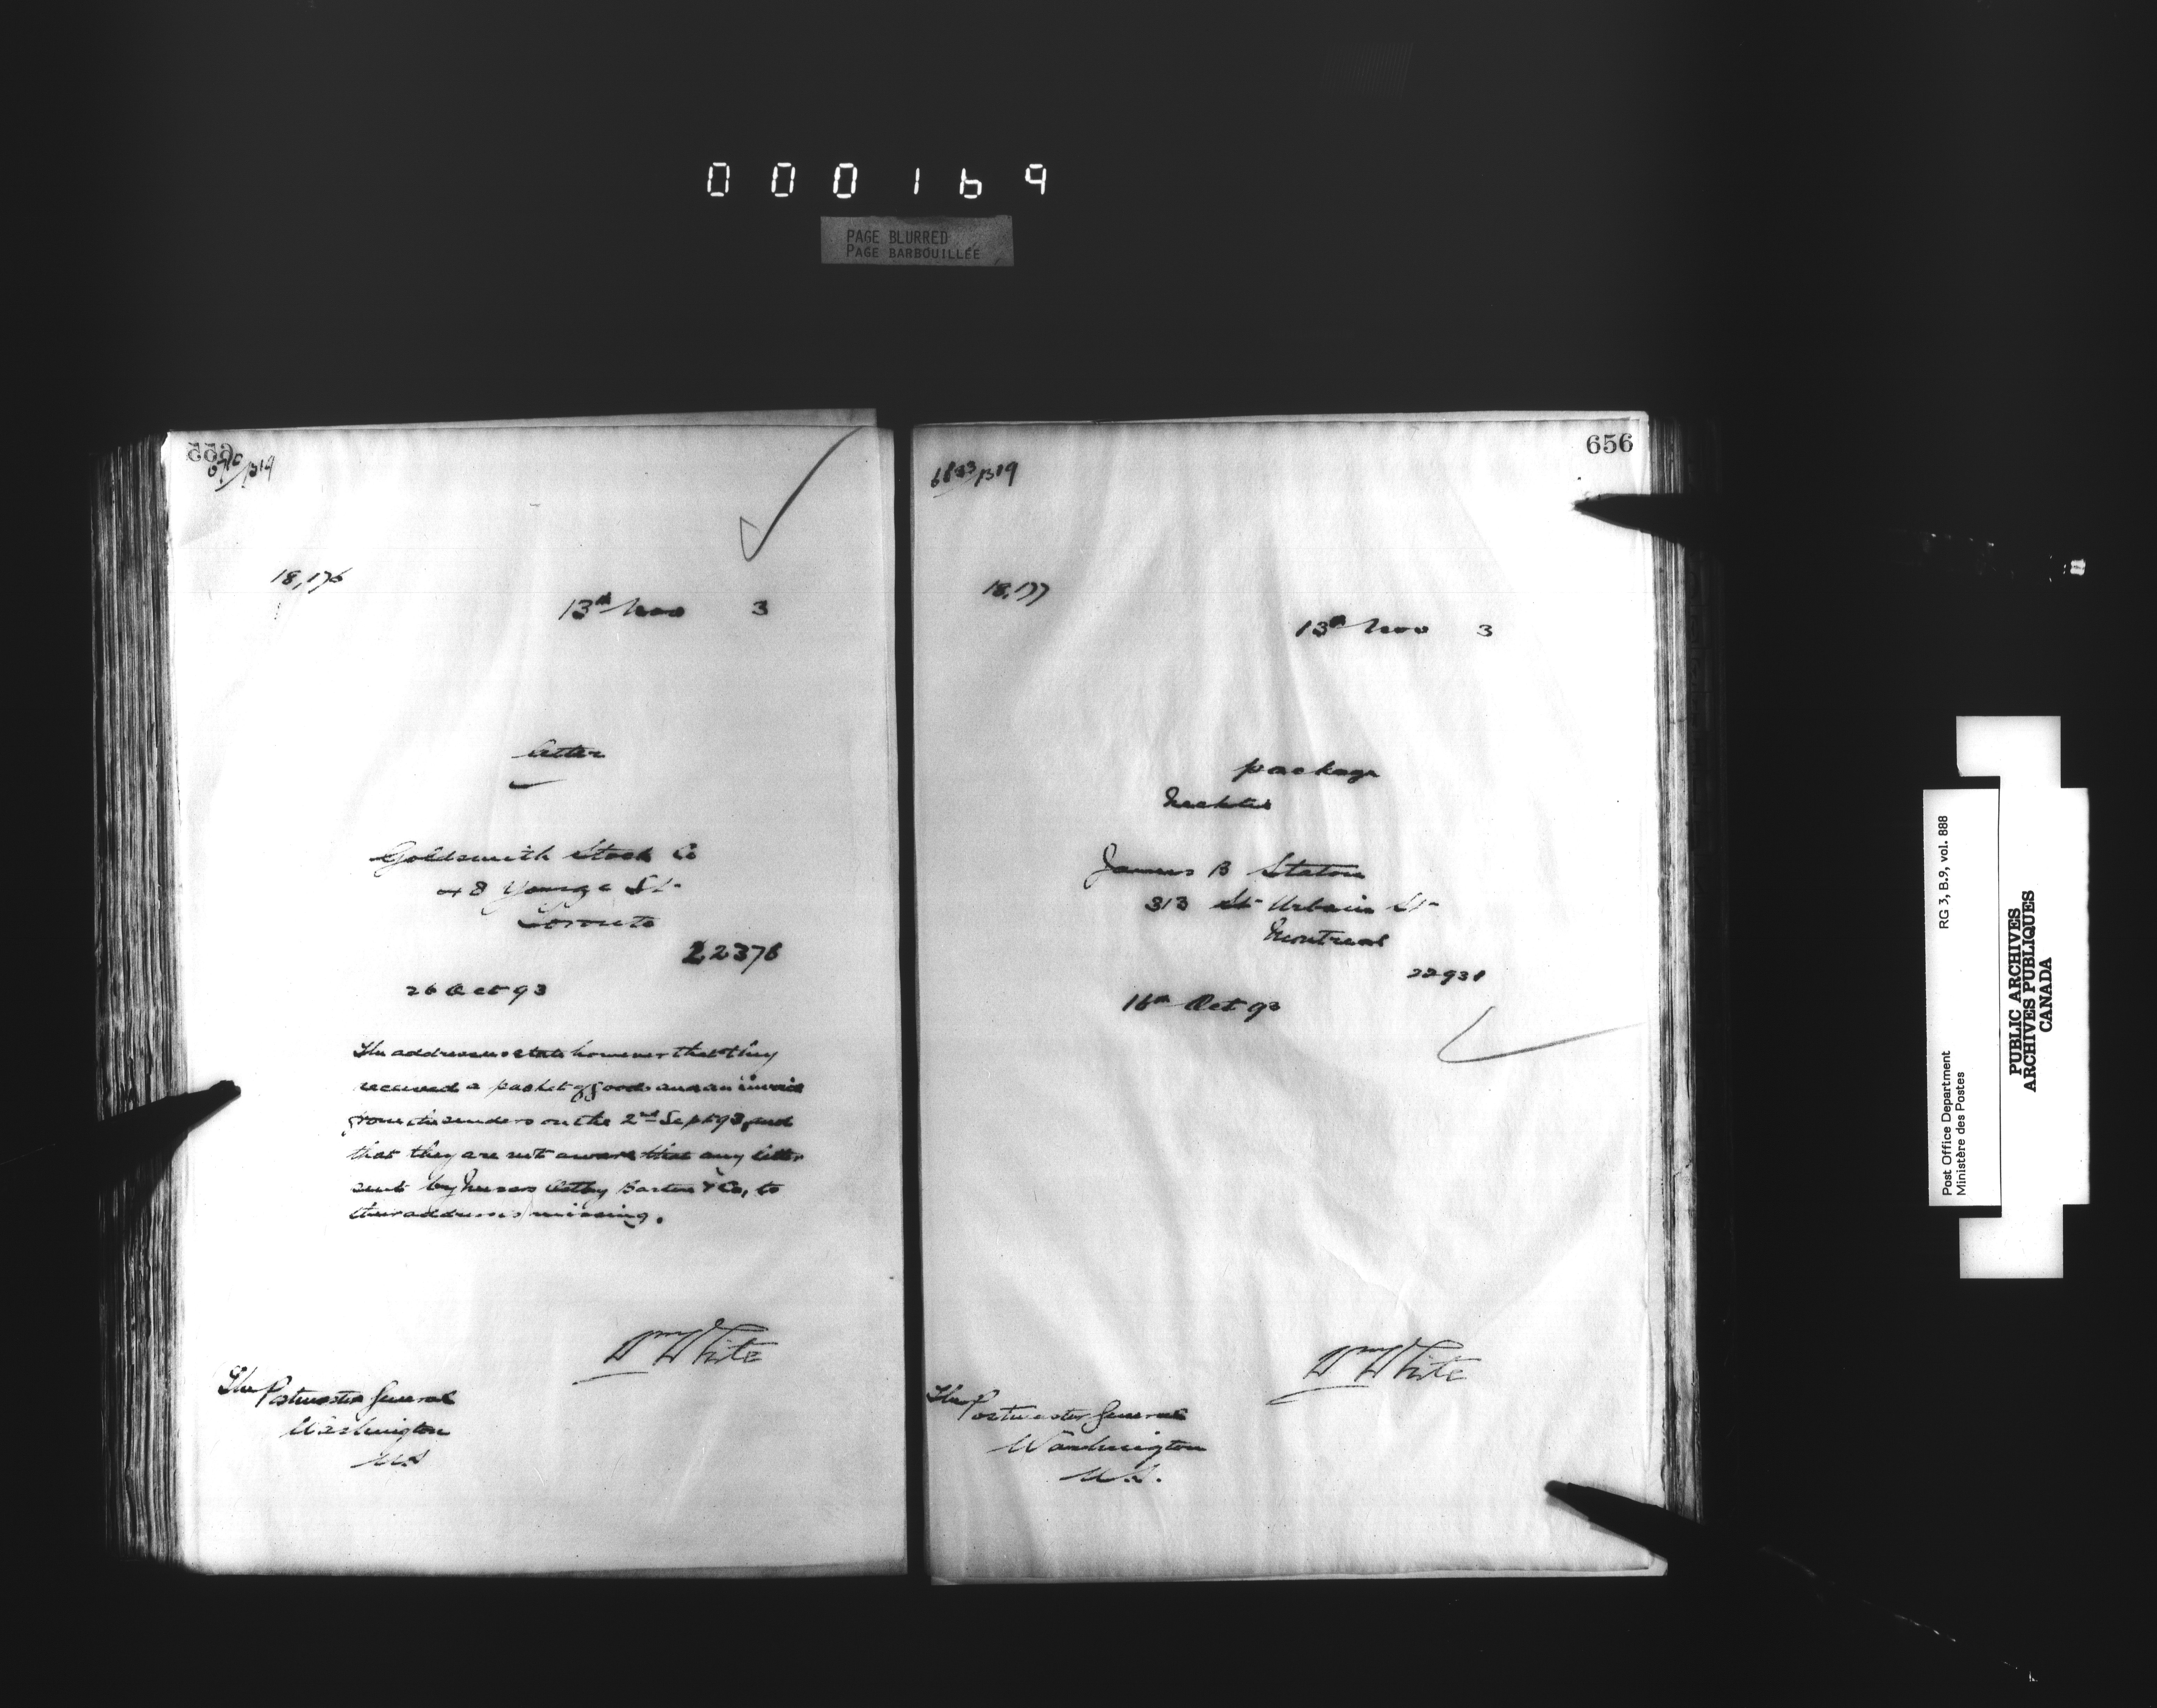 000169
PAGE BLURRED
PAGE BARBOUILLÉE
655
/B19
18,176
13th Nov 3
letter
Goldsmith Stock Co
48 Yonge St.
Toronto
22376
26 Oct 93
The addressees state however that they
received a packet of goods and an invoice
from the senders on the 2nd Sept 93, and
that they are not aware that any letter
sent by Messrs Ostby Barton & Co, to
their address is missing.
Wm White
The Postmaster General
Washington
U.S
656
6833/B19
18,177
13th Nov 3
package
Neckties
James B Staton
313 St Urbain St
Montreal
22931
16th Oct 93
Wm White
The Postmaster General
Washington
U.S.
Post Office Department
Ministère des Postes
RG 3, B.9, vol. 888
PUBLIC ARCHIVES
ARCHIVES PUBLIQUES
CANADA